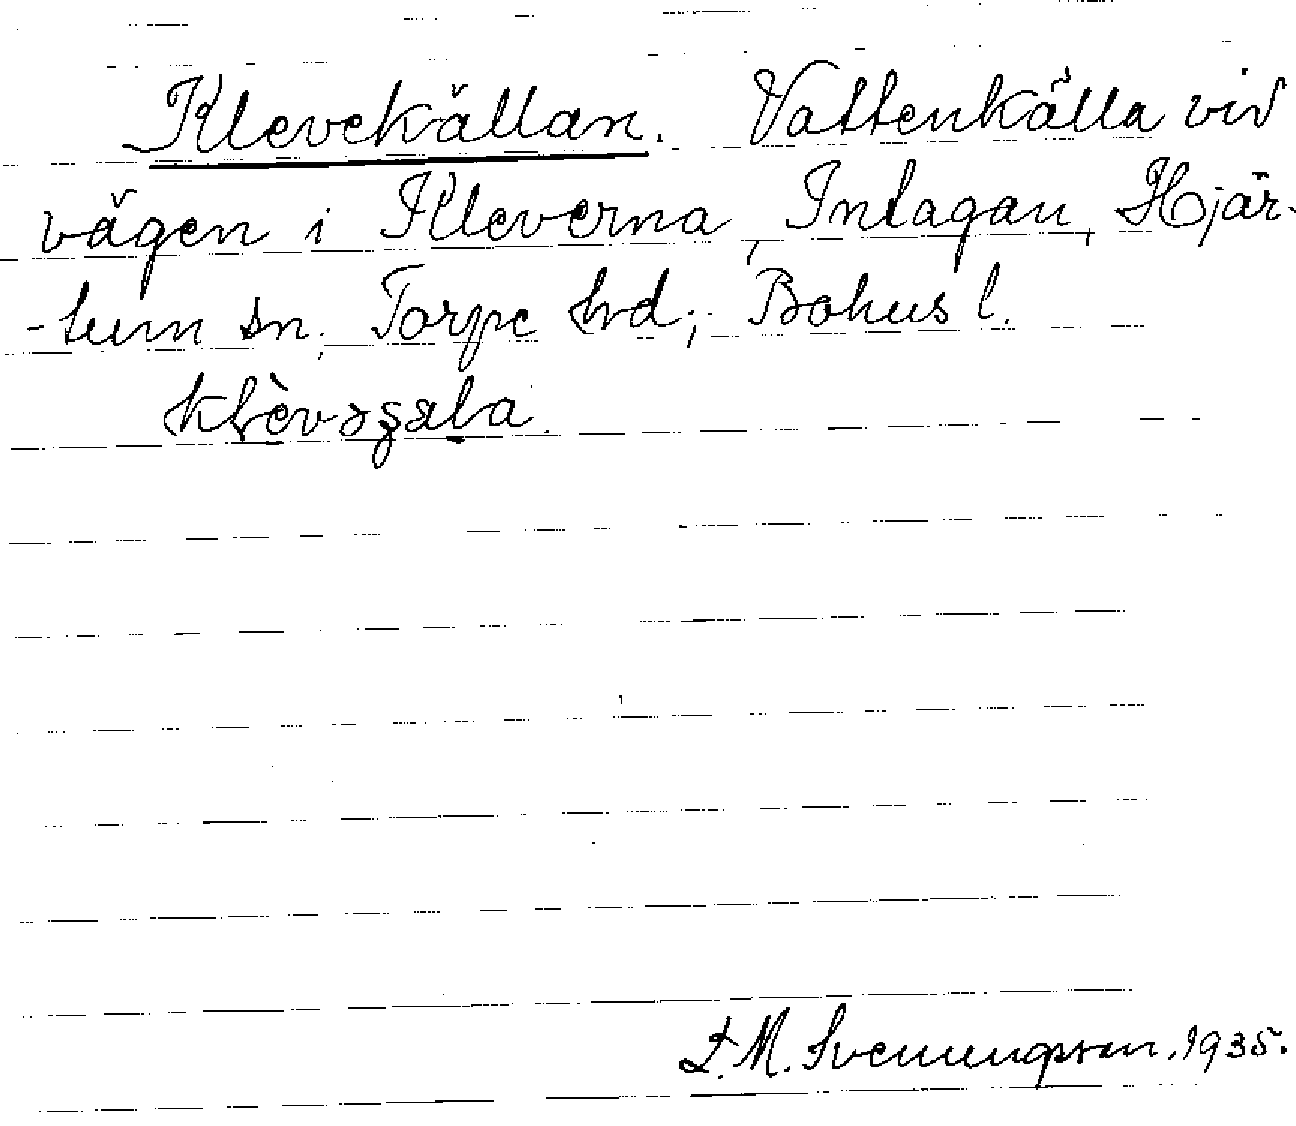 Klevekällan. Vattenkälla vid
vägen i Kleverna, Intagan, Hjär-
-tum sn, Torpe hrd; Bohus l.
L. M. Svenungsson. 1935.